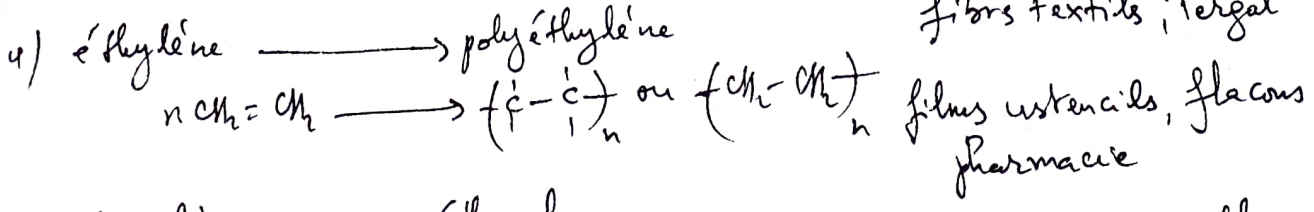 fibrs textils, Tergal
4) éthylène → polyéthylène
n CH₂ = CH₂ → (-C-C-)n ou (-CH₂-CH₂-)n films ustencils, flacons
pharmacie